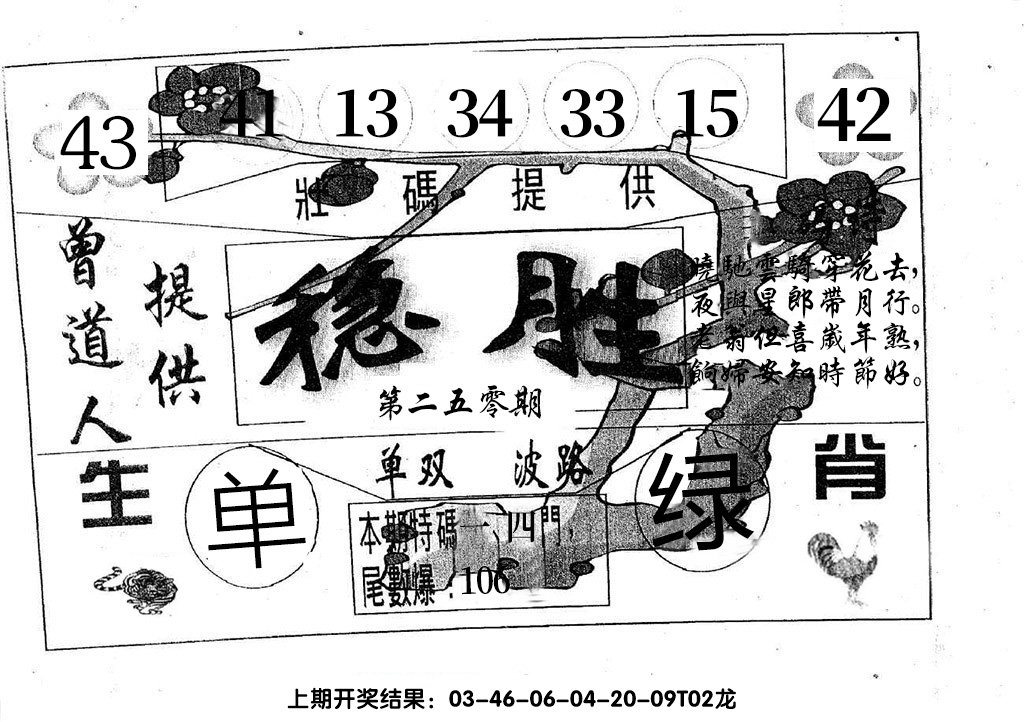 43 41 13 34 33 15 42
壯碼提供
曾道人
提供
稳胜
第二五零期
曉馳雲騎穿花去，
夜與星郎帶月行。
老翁但喜歲年熟，
餉婦安知時節好。
单双 波路
生
肖
单
绿
本期特碼一、四門，
尾數爆：106
上期开奖结果：03-46-06-04-20-09T02龙